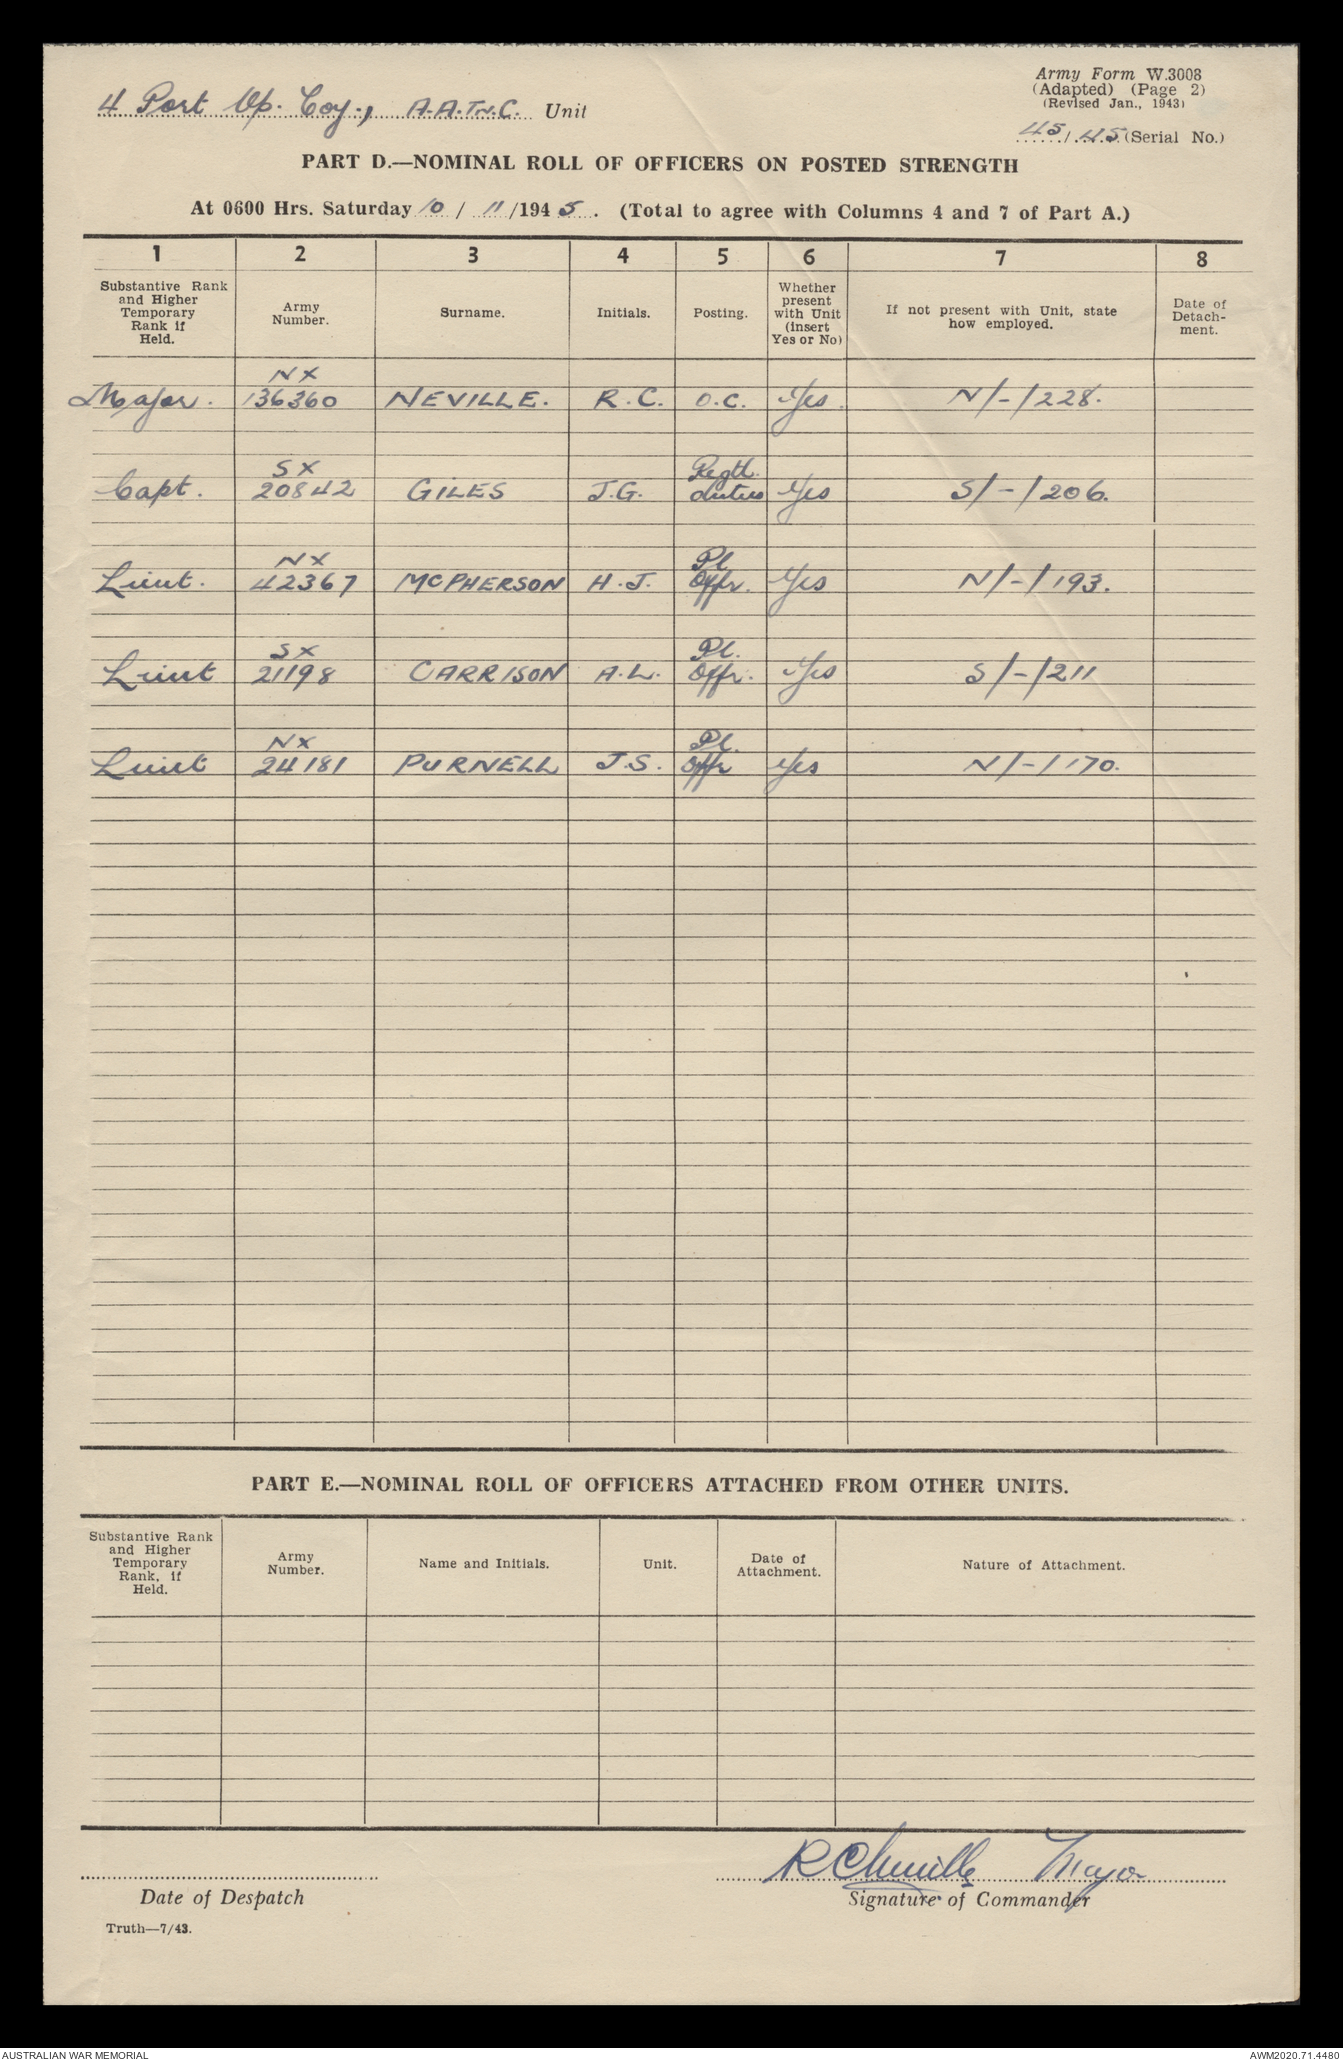 Army Form W.3008
(Adapted) (Page 2)
(Revised Jan., 1943)
4 Port Op. Coy., A.A.Tn.C. Unit
45/45 (Serial No.)
PART D.—NOMINAL ROLL OF OFFICERS ON POSTED STRENGTH
At 0600 Hrs. Saturday 10 / 11 /194 5 . (Total to agree with Columns 4 and 7 of Part A.)
1 2 3 4 5 6 7 8
Substantive Rank and Higher Temporary Rank if Held.
Army Number.
Surname.
Initials.
Posting.
Whether present with Unit (insert Yes or No)
If not present with Unit, state how employed.
Date of Detach-ment.
NX
Major. 136360 NEVILLE. R.C. O.C. Yes. N/-/228.
SX Regtl.
Capt. 20842 GILES J.G. duties Yes S/-/206.
NX Pl.
Lieut. 42367 McPHERSON H.J. Offr. Yes N/-/193.
SX Pl.
Lieut 21198 CARRISON A.L. Offr. Yes S/-/211
NX Pl.
Lieut 24181 PURNELL J.S. Offr Yes N/-/170.
PART E.—NOMINAL ROLL OF OFFICERS ATTACHED FROM OTHER UNITS.
Substantive Rank and Higher Temporary Rank, if Held.
Army Number.
Name and Initials.
Unit.
Date of Attachment.
Nature of Attachment.
RCNeville Major
Date of Despatch Signature of Commander
Truth—7/43.
AUSTRALIAN WAR MEMORIAL AWM2020.71.4480